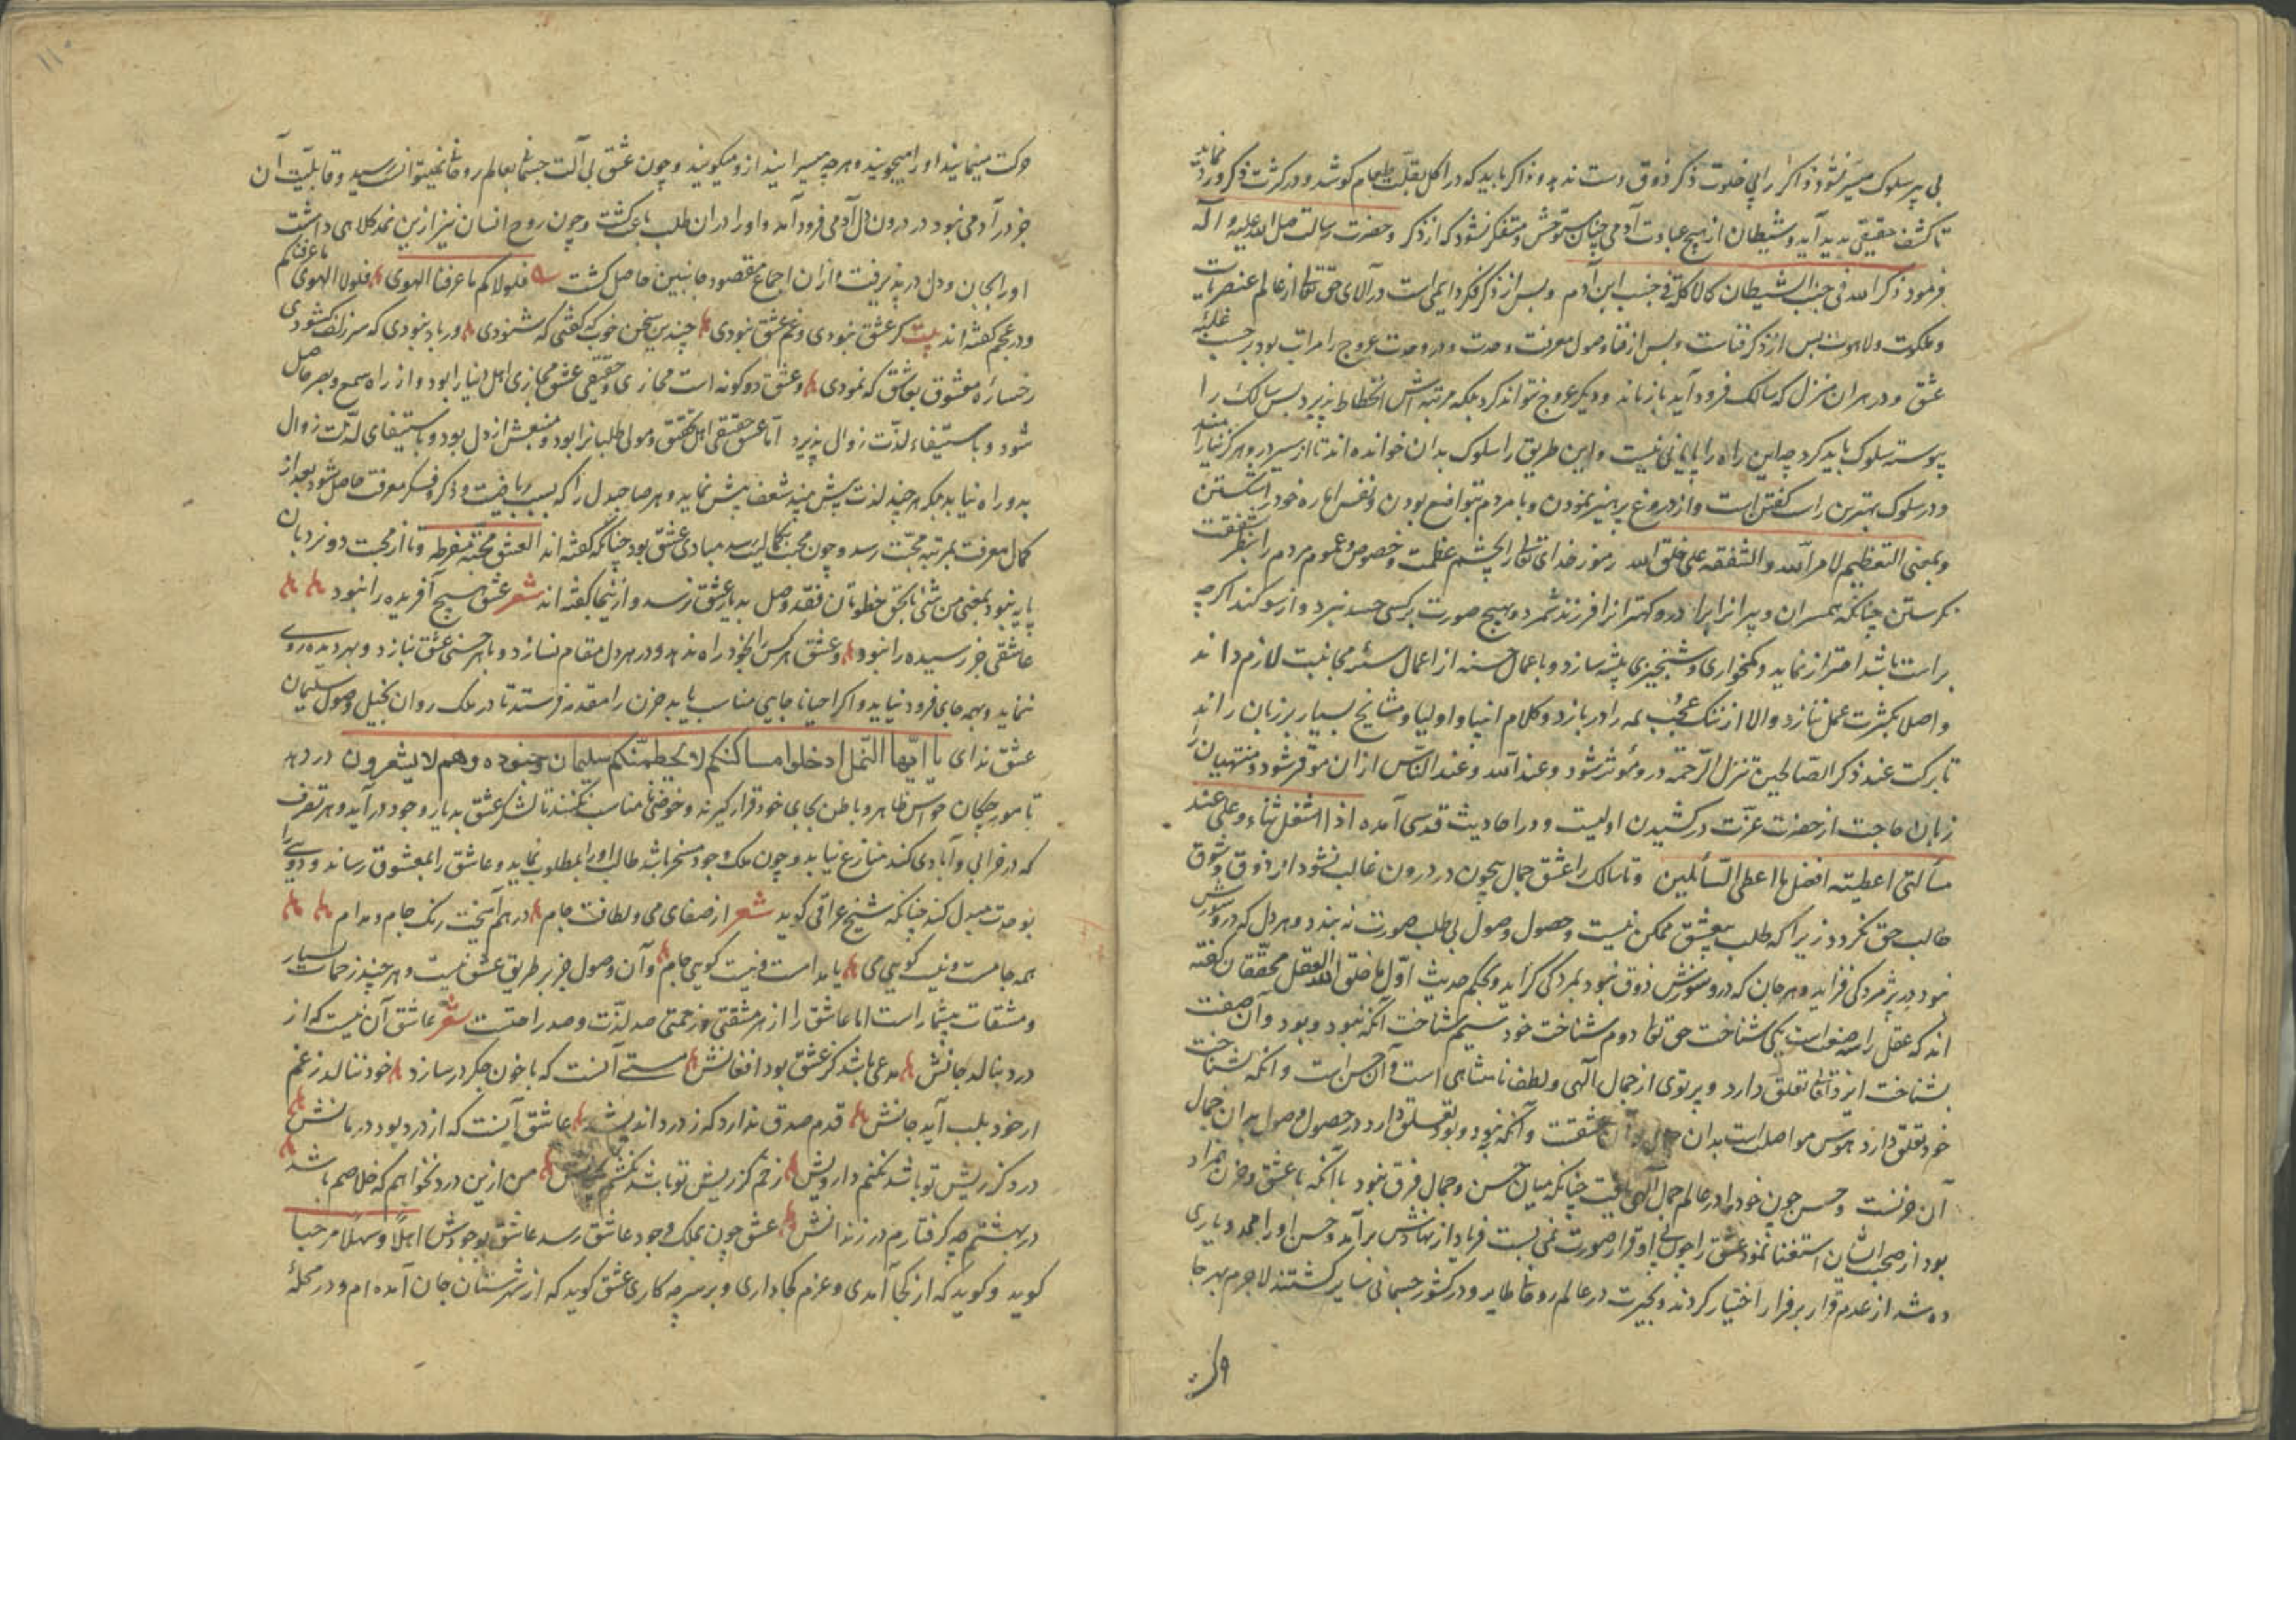 بی پیر سلوک میسر نشود ذاکر را بی خلوت ذکر ذوق دست ندهد و ذاکر باید که در اکل بقلّت طعام کوشد و در کثرت ذکر ورد نماید
تا کشف حقیقی پدید آید و شیطان از هیچ عبادت آدمی چنان متوحش و متفکر نشود که از ذکر و حضرت رسالت صلی الله علیه و آله
فرمود ذکر الله فی جنب الشیطان کالاکلة فی جنب ابن آدم و پس از ذکر فکر دایمی است در آلای حق تعالی از عالم عنصریات
و ملکوت و لاهوت پس از ذکر فناست و پس از فنا وصول معرفت وحدت و در وحدت عروج را مراتب بود بر حسب غلبهٔ
عشق و در هر ان منزل که سالک فرود آید باز ماند و دیکر عروج نتواند کرد بلکه مرتبه اش انحطاط پذیرد پس سالک را
پیوسته سلوک باید کرد چه این راه را پایانی نیست و این طریق را سلوک بدان خوانده اند تا از سیر در و هرکز نیارامند
و در سلوک بهترین راست کفتن است و از دروغ پرهیز نمودن و با مردم بتواضع بودن و نفس اماره خود را شکستن
و بمعنی التعظیم لامر الله و الشفقه علی خلق الله رموز خدای تعالی را بچشم عظمت و خصوص و عموم مردم را بنظر شفقت
نکرستن چنانکه همسران و پیرانرا برادر و کهترانرا فرزند شمرد و بهیچ صورت بر کسی حسد نبرد و از سوکند اکرچه
براست باشد احتراز نماید و کمخواری و شبخیزی پیشه سازد و باعمال حسنه از اعمال سیّئه مجانبت لازم داند
و اصلا بکثرت عمل ننازد و الا از ننک عجب همه را در بازد و کلام انبیا و اولیا و مشایخ بسیار بر زبان راند
تا برکت عند ذکر الصالحین تنزل الرّحمة در و مؤثر شود و عند الله و عند النّاس از ان موقر شود و منتهیان را
زبان حاجت از حضرت عزّت در کشیدن اولیست و در احادیث قدسی آمده اذا اشتغل ثناء و علی عبد
مسألتی اعطیته افضل ما اعطی السّائلین و تا سالک را عشق جمال بیچون در درون غالب نشود از ذوق و شوق
طالب حق نکردد زیرا که طلب بیعشق ممکن نیست و حصول وصول بی طلب صورت نه بندد و هر دل که در و سوزش
نبود در پژمردکی فزاید و هر جان که در و سوزش ذوق نبود بمردکی کراید و بحکم حدیث اوّل ما خلق الله العقل محقّقان کفته
اند که عقل را سه صفت است یکی شناخت حق تعالی دوم شناخت خود سیم شناخت آنکه نبود و بود و آن صفت
بشناخت ایزد تعالی تعلق دارد و پرتوی از جمال آلهی و لطف نامتناهی است و آن حسن است و انکه بشناخت
خود تعلق دارد هوس مواصلت بدان جمال و آن عشقست و آنکه نبود و بود تعلق دارد در حصول وصول بدان جمال
آن حزنست و حسن چون خود را در عالم جمال آلهی یافت چنانکه میان حسن و جمال فرق نبود با آنکه با عشق و حزن همزاد
بود از صحبت ایشان استغنا نمود عشق را چون بی او قرار صورت نمی بست فریاد از نهادش برآمد و حسن او را همدم و یاری
ده شد از عدم قرار بر فرار اختیار کردند و بحیرت در عالم روحانی طایر و در کشور جسمانی سایر کشتند لاجرم بهر جا
حرکت مینمایند او را میجویند و هر چه میسرایند از و میکویند و چون عشق بی آلت جسمانی بعالم روحانی نمیتوانست رسید و قابلیّت آن
جز در آدمی نبود در درون دل آدمی فرود آمد و او را در ان طلب باعث کشت و چون روح انسان نیز ازین نمد کلاهی داشت
او را بجان و دل در پذیرفت و از ان اجماع مقصود جانبین حاصل کشت فلولاکم ما عرفنا الهوی فلولا الهوی ما عرفناکم
و در عجم کفته اند بیت کر عشق نبودی و غم عشق نبودی چندین سخن خوب که کفتی که شنودی ور باد نبودی که سر زلف کشودی
رخسارهٔ معشوق بعاشق که نمودی و عشق دو کونه است مجازی و حقیقی عشق مجازی اهل دنیا را بود و از راه سمع و بصر حاصل
شود و باستیفاء لذّت زوال پذیرد امّا عشق حقیقی اهل تحقیق و مولی طلبانرا بود و منبعش از دل بود و باستیفای لذّت زوال
بدو راه نیابد بلکه هر چند لذت بیش بیند شعف بیش نماید و هر صاحبدل را که بسبب ریاضت و ذکر و فکر معرفت حاصل شود بعد از
کمال معرفت بمرتبه محبّت رسد و چون محبت بکمالیّت رسد مبادی عشق بود چنانکه کفته اند العشق محبّة مفرطه و تا از محبت دو نردبان
پایه نبود بمعنی من شیٔ بالحق خطوتان فقد وصل بدیار عشق نرسد و از ینجا کفته اند شعر عشق هیچ آفریده را نبود
عاشقی جز رسیده را نبود و عشق هر کس را بخود راه ندهد و در هر دل مقام نسازد و با هر حسنی عشق نبازد و بهر دیده روی
ننماید و بهمه جای فرود نیاید و اکر احیانا جایی مناسب یابد حزن را مقدمه فرستد تا در ملک روان بخیل وصول سلیمان
عشق ندای یا ایّها النّمل ادخلوا مساکنکم لا یحطمنّکم سلیمان و جنوده و هم لا یشعرون در دهد
تا مورچکان حواس ظاهر و باطن بجای خود قرار کیرند و خوضی نامناسب نکنند تا لشکر عشق بدیار وجود در آید و هر تصرف
که در خرابی و آبادی کند منازع نیابد و چون ملک وجود مسخر باشد طالب او را بمطلوب نماید و عاشق را بمعشوق رساند و دویی را
بوحدت مبدل کند چنانکه شیخ عراقی کوید شعر از صفای می و لطافت جام در هم آمیخت رنک جام و مدام
همه جامست و نیست کویی می یا مدامست و نیست کویی جام و آن وصول جز بر طریق عشق نیست و هر چند زحمات بسیار
و مشقات بیشمار است اما عاشق را از هر مشقتی و زحمتی صد لذّت و صد راحتست شعر عاشق آن نیست که از
درد بنالد جانش مدعی باشد کز عشق بود افغانش مستی آنست که با خون جکر در سازد خود ننالد ز غم
ار خود بلب آید جانش قدم صدق ندارد که ز درد اندیشد عاشق آینست که از درد بود درمانش
درد کز ریش تو باشد نکنم دارویش زخم کز ریش تو باشد نکشم من ازین درد نخواهم که خلاصم باشد
در بهشتم چه کرفتارم در زندانش عشق چون بملک وجود عاشق رسد عاشق بوجودش اهلًا و سهلًا مرحبا
کوید و کوید که از کجا آمدی و عزم کجا داری و بر سر چه کاری عشق کوید که از شهرستان جان آمده ام و در محلهٔ